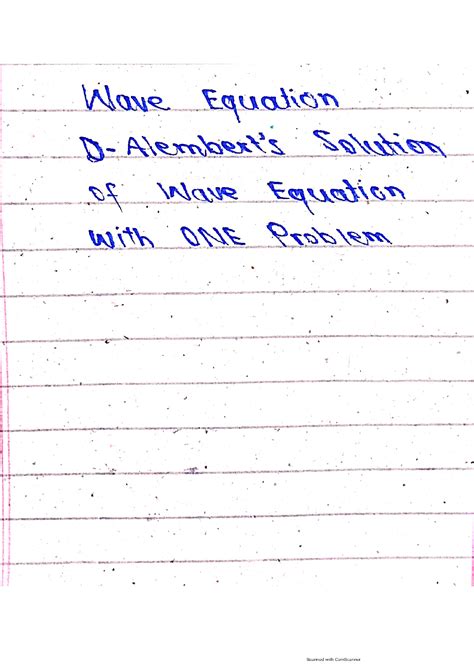 Wave Equation
D-Alembert's Solution
of Wave Equation
with ONE Problem
Scanned with CamScanner